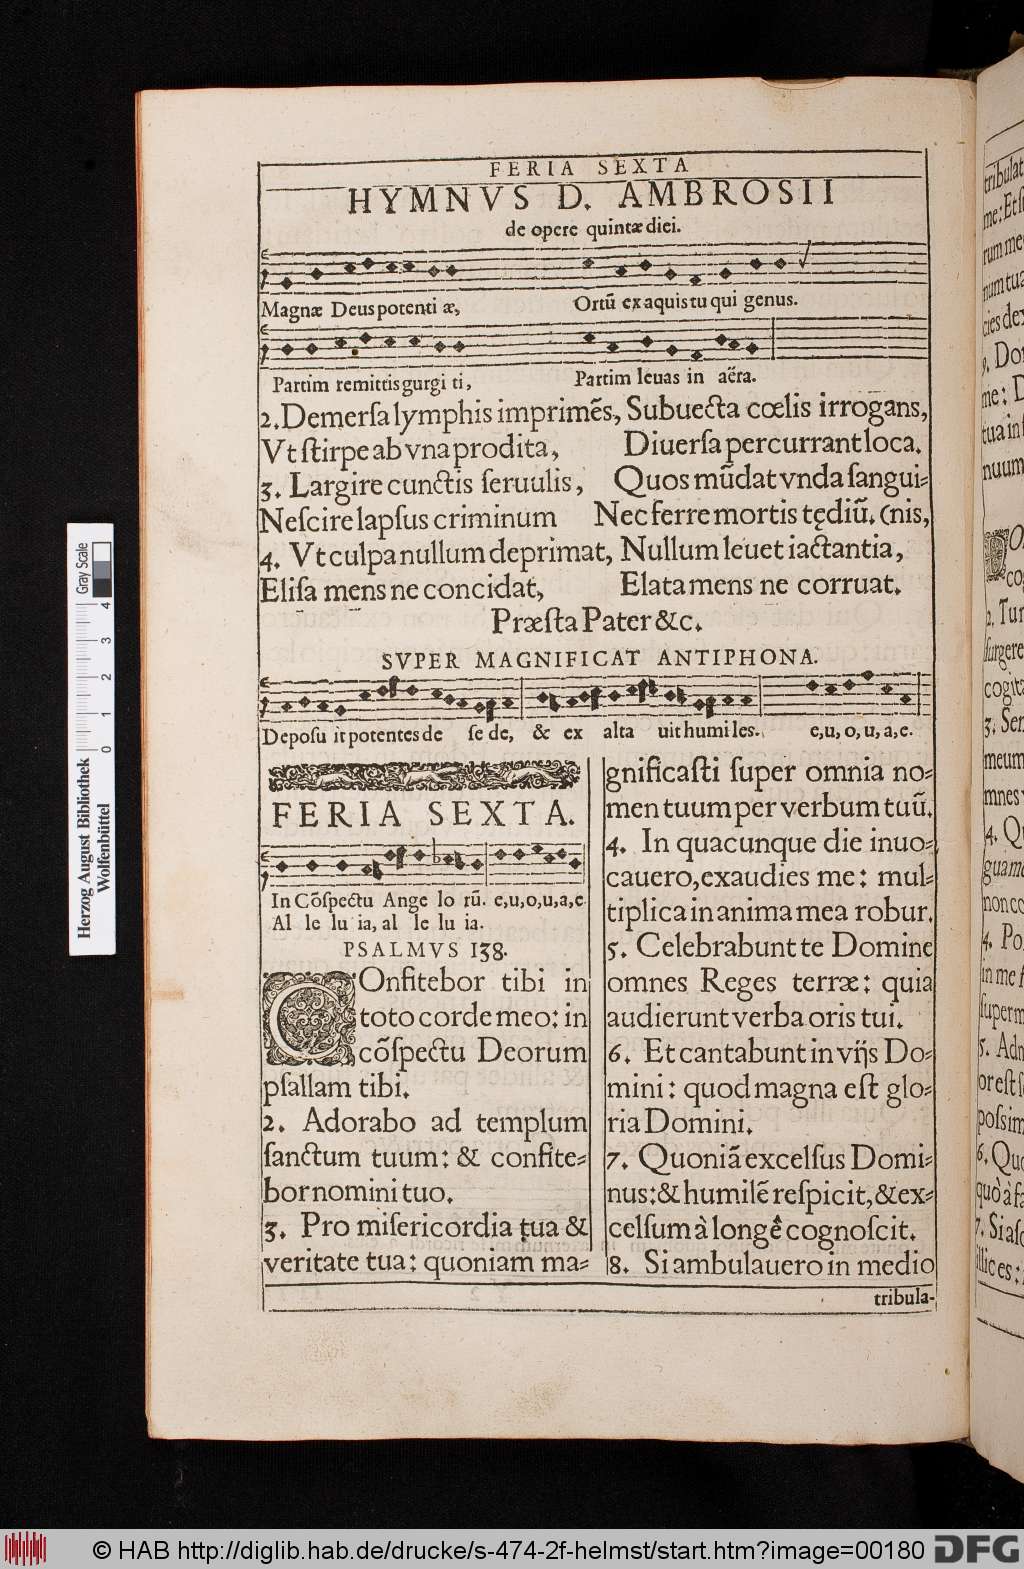 FERIA SEXTA
HYMNVS D. AMBROSII
de opere quintæ diei.
Magnæ Deus potenti æ, Ortũ ex aquis tu qui genus.
Partim remittis gurgi ti, Partim leuas in aëra.
2. Demerſa lymphis imprimẽs, Subuecta cœlis irrogans,
Vt ſtirpe ab vna prodita, Diuerſa percurrant loca.
3. Largire cunctis ſeruulis, Quos mũdat vnda ſangui-
Neſcire lapſus criminum Nec ferre mortis tędiũ. (nis,
4. Vt culpa nullum deprimat, Nullum leuet iactantia,
Eliſa mens ne concidat, Elata mens ne corruat.
Præſta Pater &c.
SVPER MAGNIFICAT ANTIPHONA.
Deposu it potentes de se de, & ex alta uit humi les. e, u, o, u, a, e.
FERIA SEXTA.
In Cõſpectu Ange lo rũ. e, u, o, u, a, e.
Al le lu ia, al le lu ia.
PSALMVS 138.
COnfitebor tibi in
toto corde meo: in
cõſpectu Deorum
pſallam tibi.
2. Adorabo ad templum
ſanctum tuum: & confite-
bor nomini tuo.
3. Pro miſericordia tua &
veritate tua: quoniam ma-
gnificaſti ſuper omnia no-
men tuum per verbum tuũ.
4. In quacunque die inuo-
cauero, exaudies me: mul-
tiplica in anima mea robur.
5. Celebrabunt te Domine
omnes Reges terræ: quia
audierunt verba oris tui.
6. Et cantabunt in vijs Do-
mini: quod magna eſt glo-
ria Domini.
7. Quoniã excelſus Domi-
nus: & humilẽ reſpicit, & ex-
celſum à longè cognoſcit.
8. Si ambulauero in medio
tribula-
Herzog August Bibliothek
Wolfenbüttel
Gray Scale
0 1 2 3 4
© HAB http://diglib.hab.de/drucke/s-474-2f-helmst/start.htm?image=00180
DFG